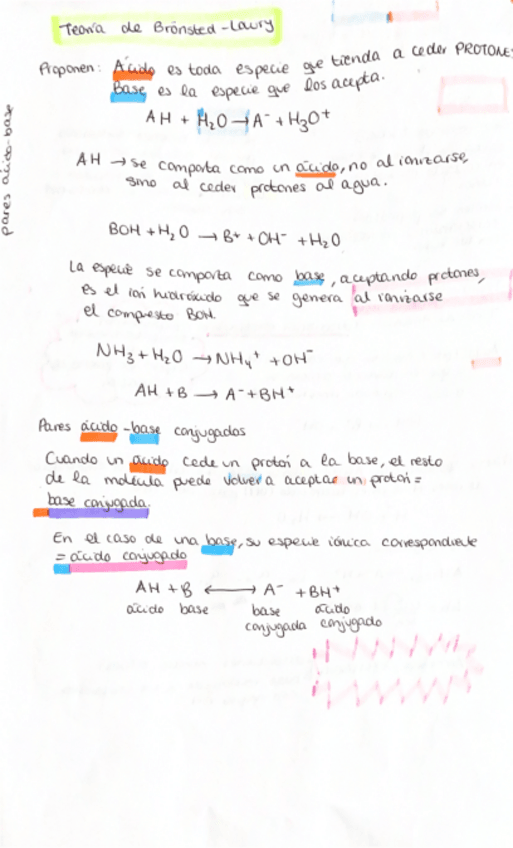 Teoría de Brönsted-Lowry
Proponen: Ácido es toda especie que tienda a ceder PROTONES
Base es la especie que los acepta.
AH + H₂O → A⁻ + H₃O⁺
pares ácido-base
AH → se comporta como un ácido, no al ionizarse,
sino al ceder protones al agua.
BOH + H₂O → B⁺ + OH⁻ + H₂O
La especie se comporta como base, aceptando protones,
es el ion hidróxido que se genera al ionizarse
el compuesto BOH.
NH₃ + H₂O → NH₄⁺ + OH⁻
AH + B → A⁻ + BH⁺
Pares ácido-base conjugados
Cuando un ácido cede un protón a la base, el resto
de la molécula puede volver a aceptar un protón =
base conjugada.
En el caso de una base, su especie iónica correspondiente
= ácido conjugado
AH + B ⟷ A⁻ + BH⁺
ácido base base ácido
conjugada conjugado